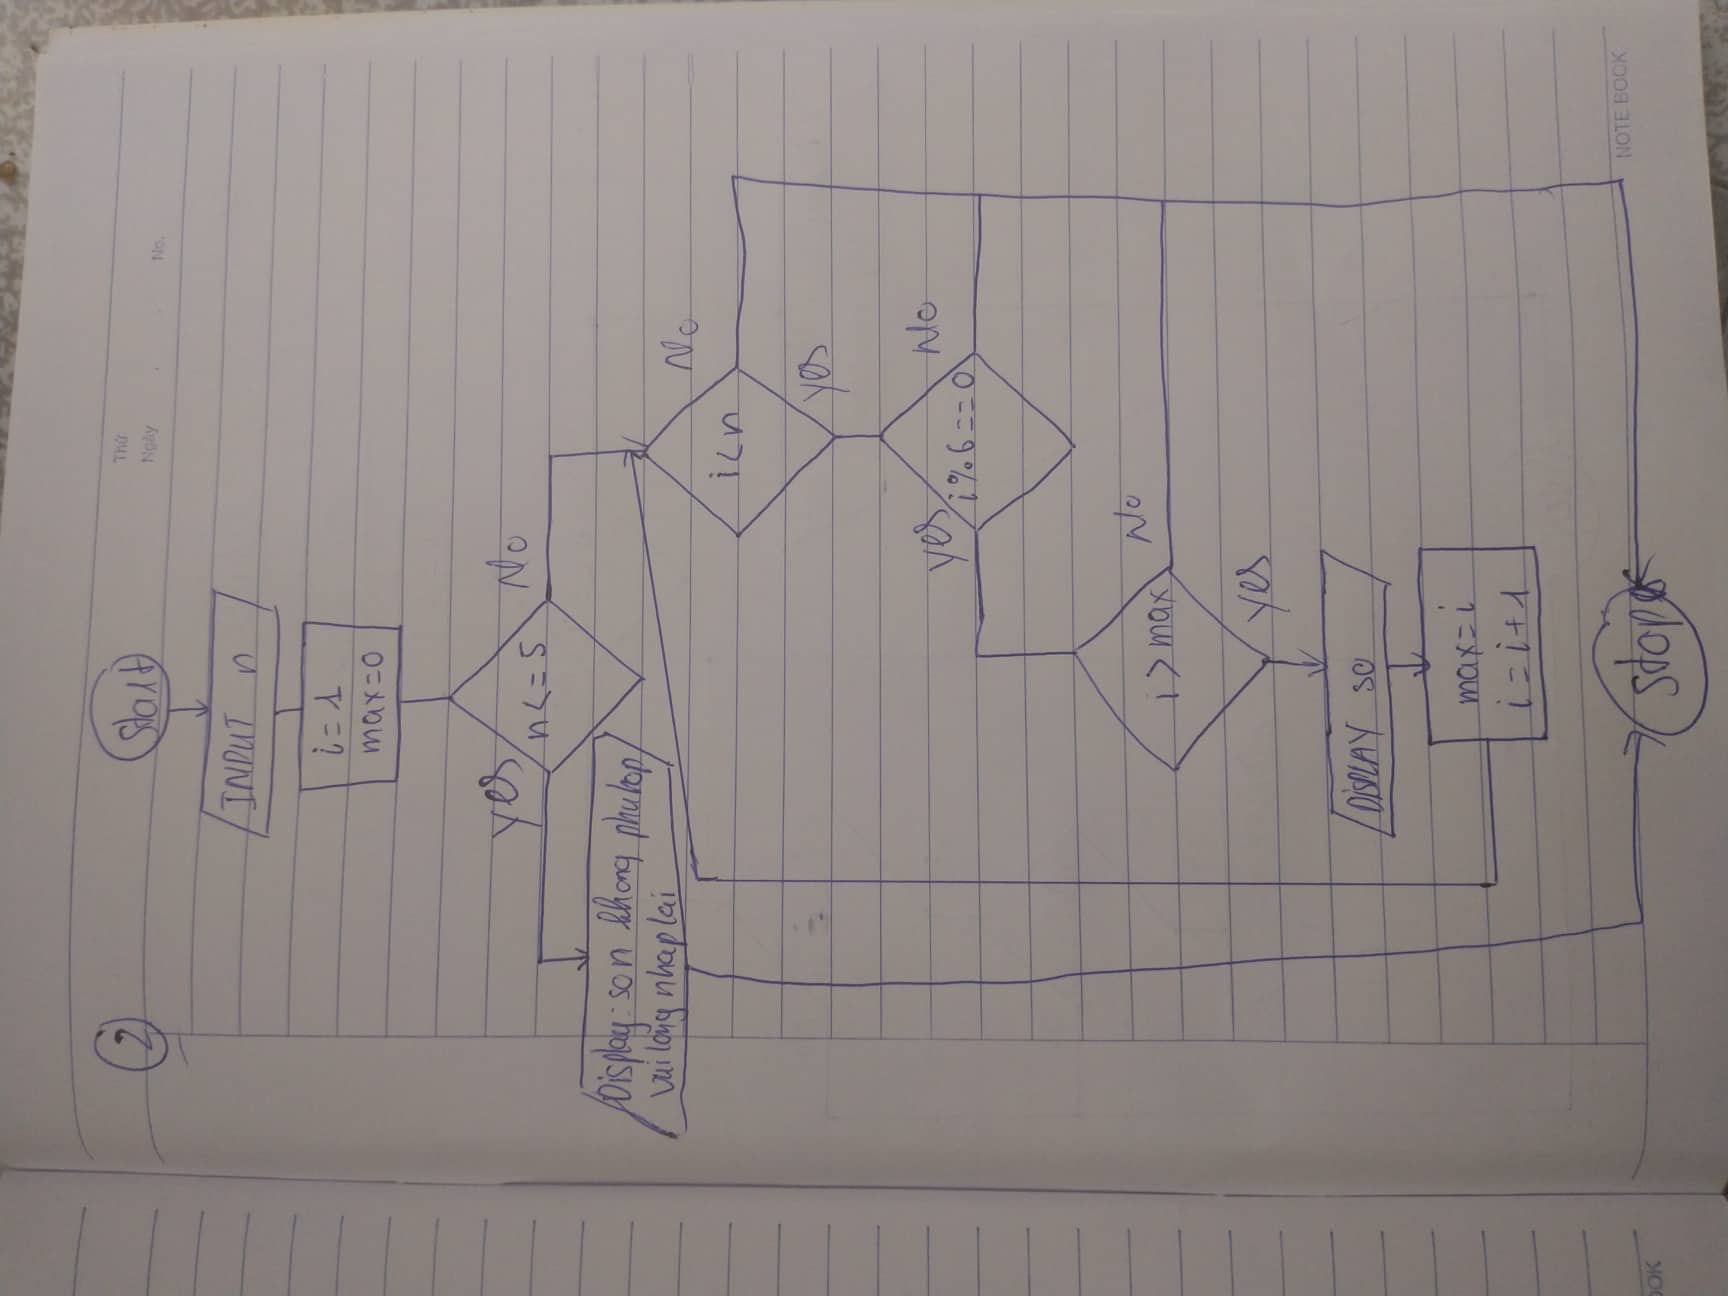 2
Thứ
Ngày
No.
Start
INPUT n
i=1
max=0
n<=5
Yes
No
Display: so n khong phu hop
vui long nhap lai
i<n
No
Yes
i%6==0
No
Yes
i>max
No
Yes
DISPLAY so
max=i
i=i+1
Stop
NOTE BOOK
OOK